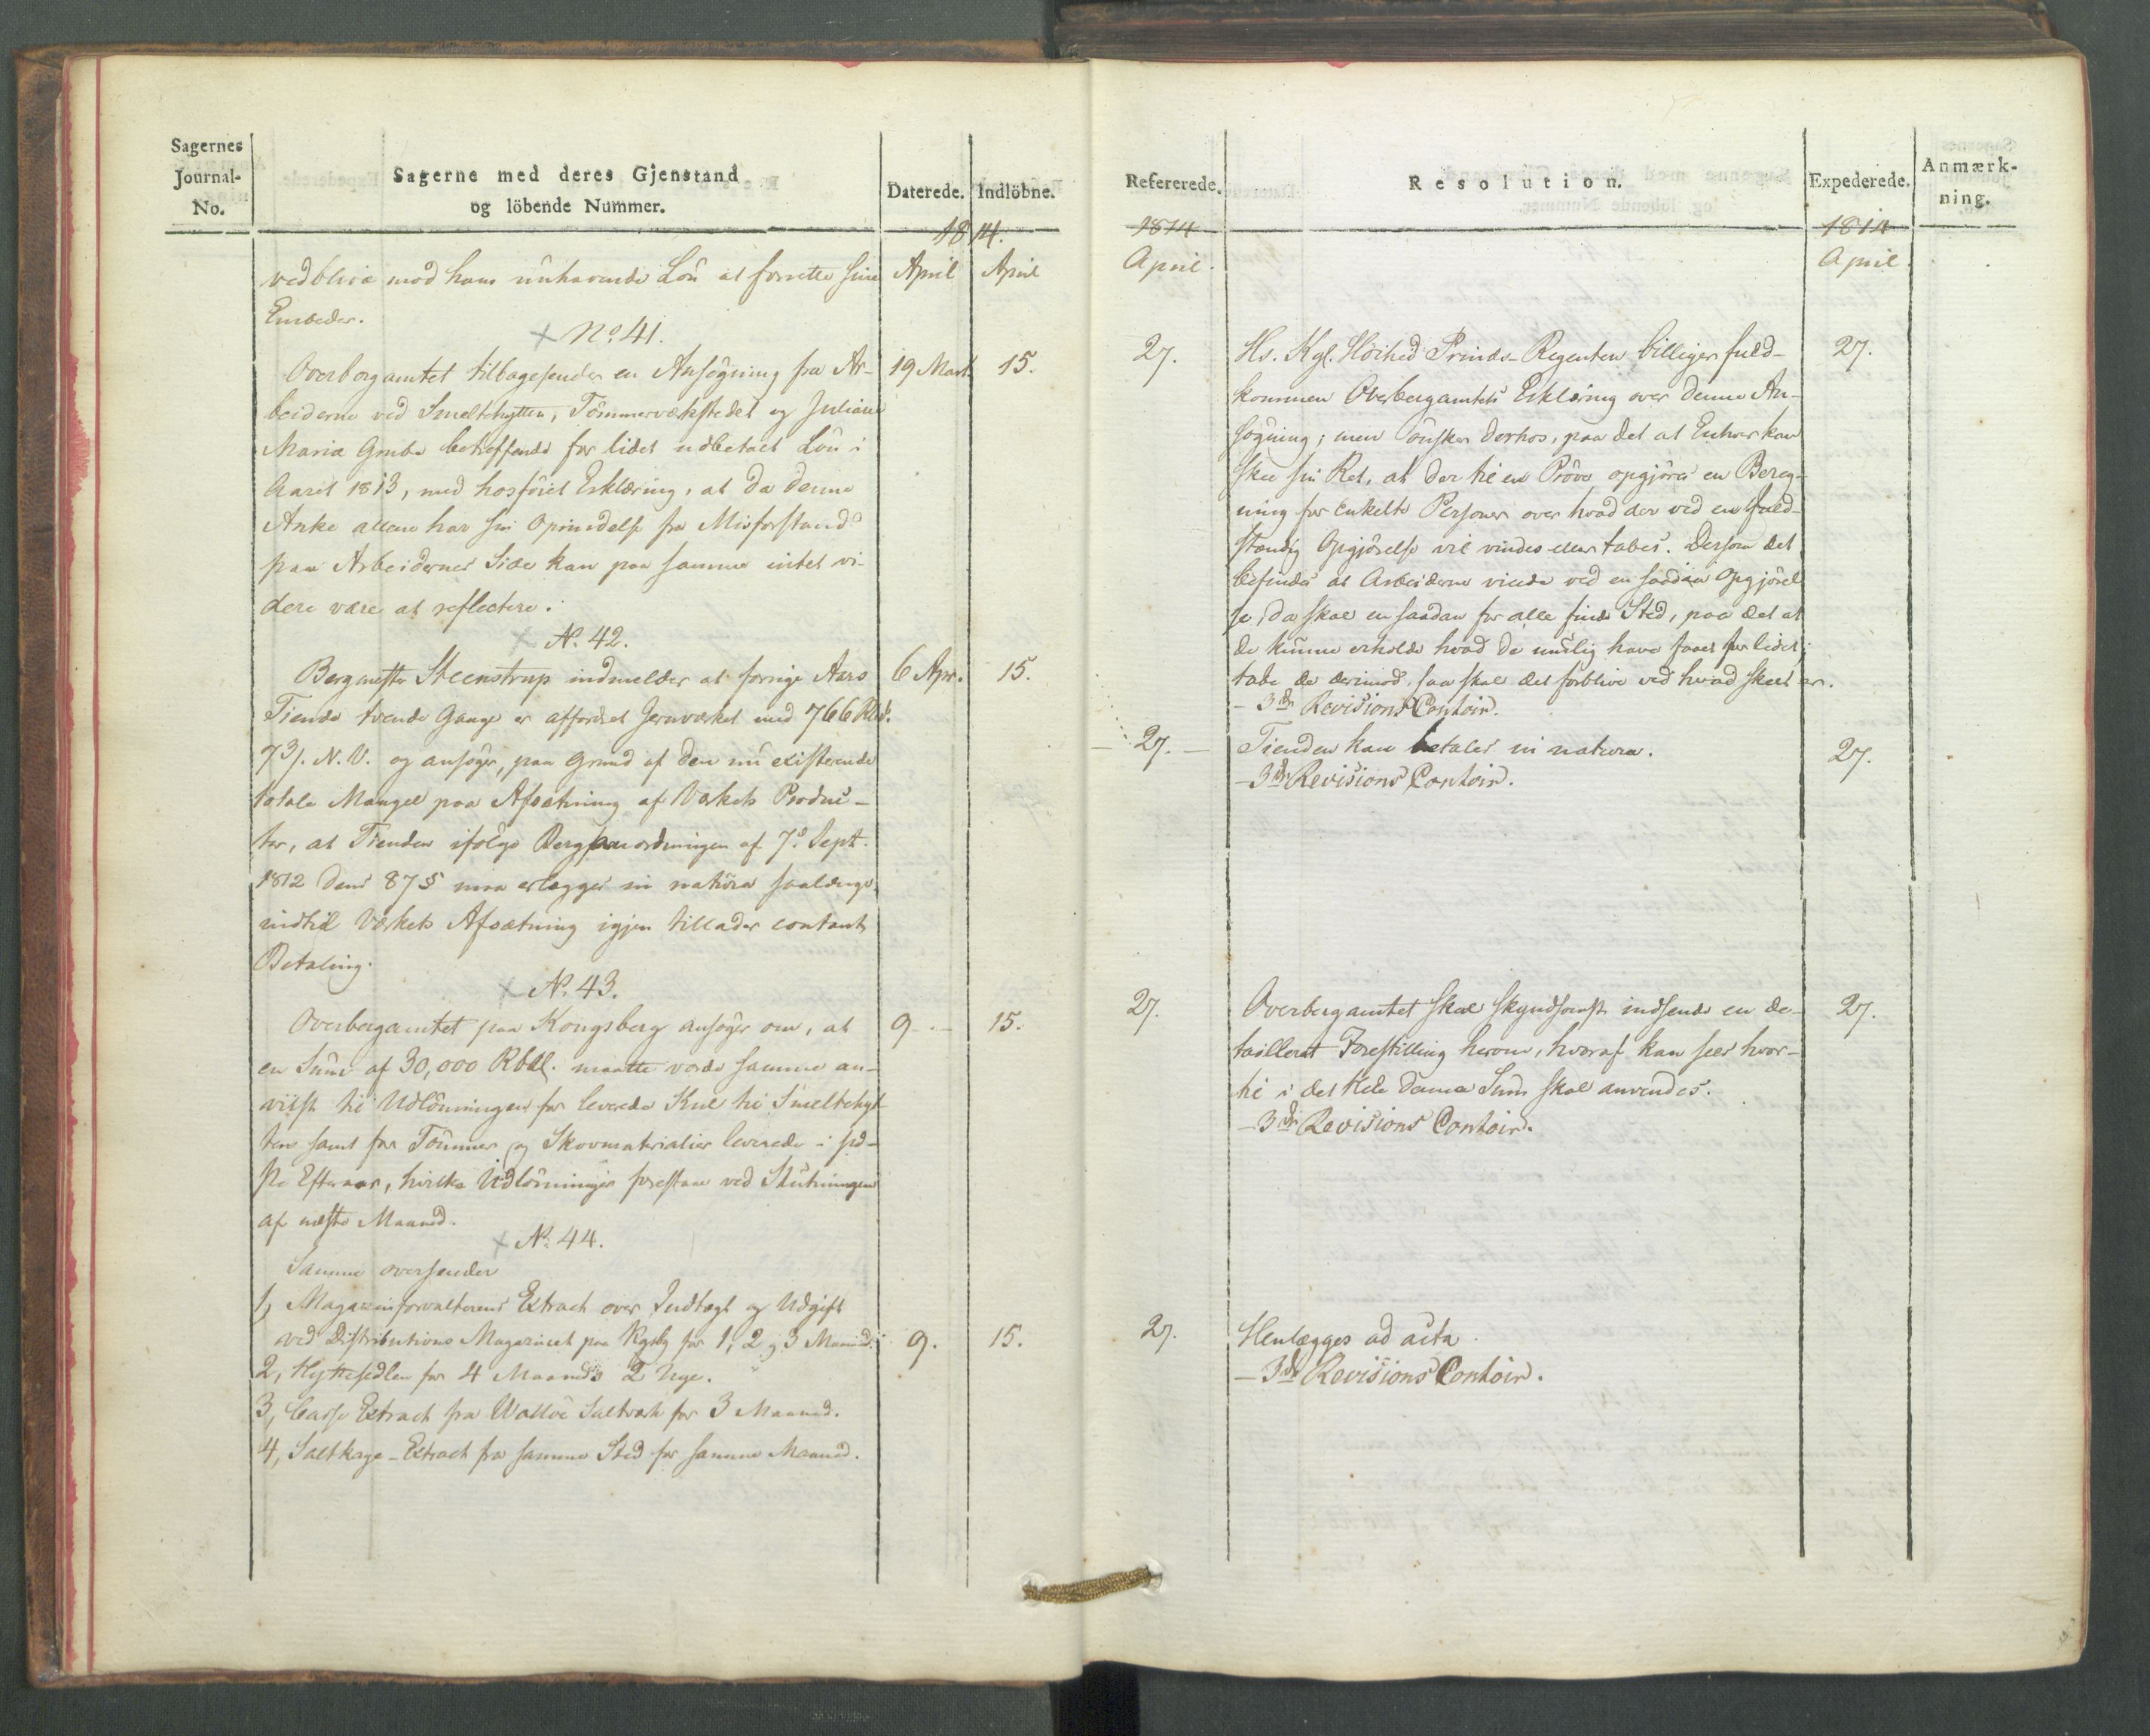 Sagernes
Journal-
No.
Sagerne med deres Gjenstand
og löbende Nummer.
Daterede.
Indlöbne.
1814.
April
April
vedblive mod hans nuhavende Lön at forrette sine
Embeder.
No 41.
Overbergamtet tilbagesender en Ansögning fra Ar-
19 Mart.
15.
beiderne ved Smeltehytten, Tömmerværkstedet og Juliane
Maria Grube betræffende for lidet udbetalt Lön i
Aaret 1813, med hosföiet Erklæring, at da denne
Anke allene har sin Oprindelse fra Misforstand
paa Arbeidernes Side kan paa samme intet vi-
dere være at reflectere.
N. 42.
Bergmester Steenstrup indmelder at forrige Aars
6 Apr.
15.
Tiende tvende Gange er affordret Jernværket med 766 Rbd.
73 s. N. V. og ansöger, paa Grund af den nu existerende
totale Mangel paa Afsætning af Værkets Produc-
ter, at Tienden ifölge Berganordningen af 7de Sept.
1812 dens 87 § maa erlægges in natura saalænge
indtil Værkets Afsætning igjen tillader contant
Betaling.
N. 43.
Overbergamtet paa Kongsberg ansöger om, at
9 -
15.
en Sum af 30,000 Rbdl. maatte vorde samme an-
viist til Udlönningen for leverede Kul til Smeltehyt-
ten samt for Tömmer og Skovmaterialier leverede i sid-
ste Efteraar, hvilke Udlönninger forestaae ved Slutningen
af næste Maaned.
N. 44.
Samme oversender
1, Magazinforvalterens Extract over Indtægt og Udgift
ved Distributions Magazinet paa Kgsbg for 1, 2 og 3 Maaned.
9.
15.
2, Hyttesedlen for 4 Maaneds 2 Uge.
3, Casse Extract fra Walløe Saltværk for 3 Maaned.
4, Saltkage-Extract fra samme Sted for samme Maaned.
Refererede.
Resolution.
Expederede.
Anmærk-
ning.
1814
1814
April.
April.
27.
Hs. Kgl. Höihed Prinds-Regenten billiger fuld-
27.
kommen Overbergamtets Erklæring over denne An-
sögning; men önsker derhos, paa det at Enhver kan
skee sin Ret, at der til en Pröve opgjöres en Bereg-
ning for enkelte Personer over hvad der ved en fuld-
stændig Opgjörelse vil vindes eller tabes. Dersom det
befindes at Arbeiderne vinde ved en saadan Opgjörel-
se, da skal en saadan for alle finde Sted, paa det at
de kunne erholde hvad de muelig have faaet for lidet;
tabe de derimod, saa skal det forblive ved hvad skeet er.
- 3die Revisions Contoir.
27.
Tienden kan betales in natura.
27.
- 3die Revisions Contoir.
27.
Overbergamtet skal skyndsomst indsende en de-
27.
tailleret Forestilling herom, hvoraf kan sees hvor-
til i det Hele denne Sum skal anvendes.
- 3die Revisions Contoir.
27.
Henlægges ad acta.
- 3die Revisions Contoir.